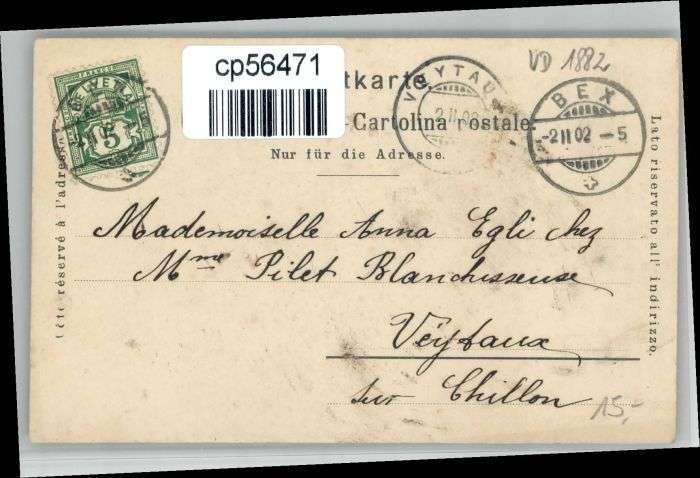 FRANCO
5
cp56471
tkarte.
Cartolina postale.
Nur für die Adresse.
VEYTAUX
2.II.02
VD 1882
BEX
-2 II 02 -5
côté réservé à l'adresse
Lato riservato all' indirizzo.
Mademoiselle Anna Egli chez
Mme Pilet Blanchisseuse
Veytaux
sur Chillon
15,-